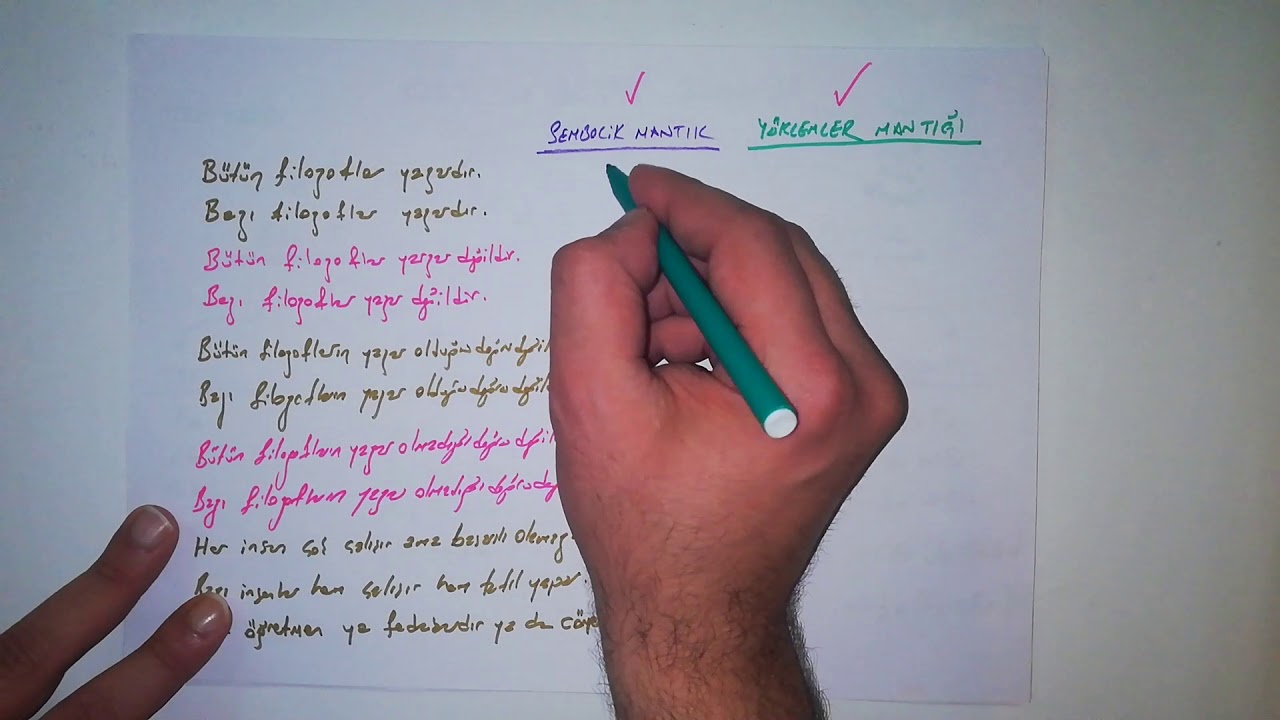 SEMBOLİK MANTIK
YÜKLEMLER MANTIĞI
Bütün filozoflar yazardır.
Bazı filozoflar yazardır.
Bütün filozoflar yazar değildir.
Bazı filozoflar yazar değildir.
Bütün filozofların yazar olduğu doğru değil
Bazı filozofların yazar olduğu doğru değil
Bütün filozofların yazar olmadığı doğru değil
Bazı filozofların yazar olmadığı doğru
Her insan çok çalışır ama başarılı olamaz
Bazı insanlar hem çalışır hem tatil yapar.
öğretmen ya fedakardır ya da